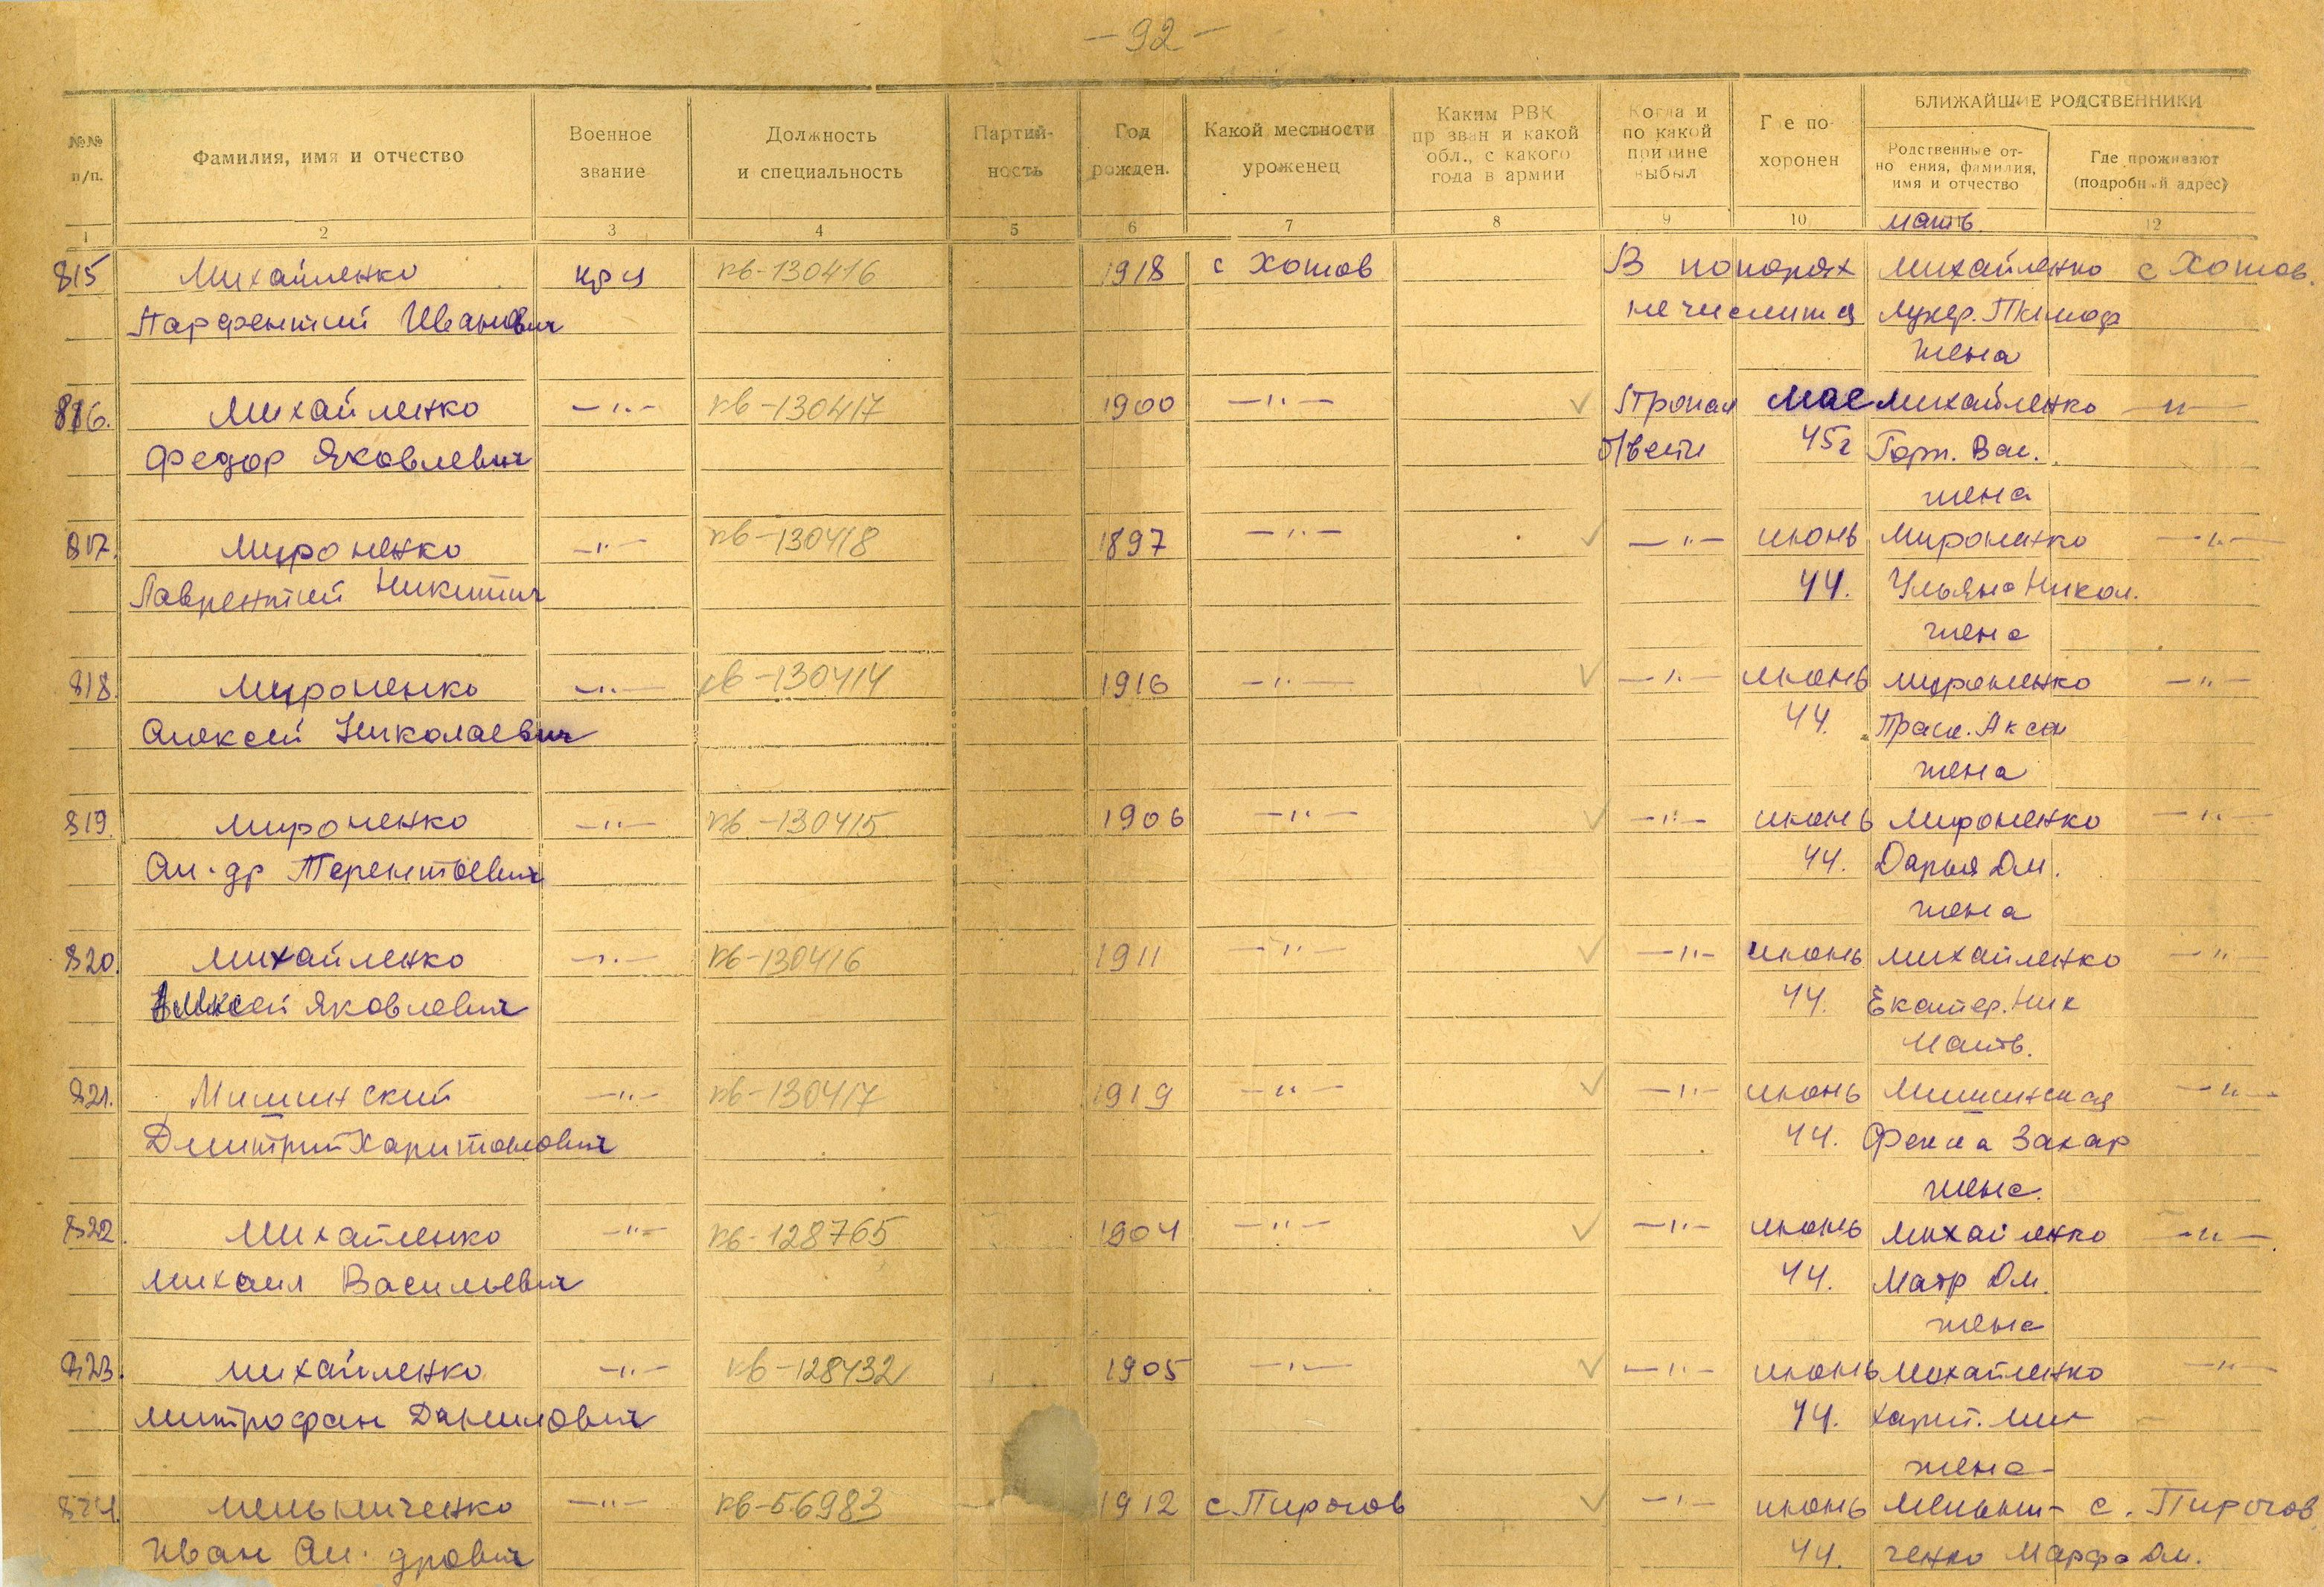 — 92 —
№№ п/п. Фамилия, имя и отчество Военное звание Должность и специальность Партий- ность Год рожден. Какой местности уроженец Каким РВК пр зван и какой обл., с какого года в армии Когда и по какой причине выбыл Где по- хоронен БЛИЖАЙШИЕ РОДСТВЕННИКИ
Родственные от- но ения, фамилия, имя и отчество Где проживают (подробный адрес)
1 2 3 4 5 6 7 8 9 10 11 12
мать
815 Михайленко кр-ц кв-130416 1918 с Хотов В потерях Михайленко с Хотов.
Парфентий Иванович не числится Лукер. Тимоф
жена
816. Михайленко —"— кв-130417 1900 —"— ✓ Пропал мае Михайленко —"—
Федор Яковлевич б/вести 45г Горп. Вас.
жена
817. Мироненко —"— кв-130418 1897 —"— ✓ —"— июнь Мироненко —"—
Лаврентий Никитич 44. Ульяна Никол.
жена
818. Мироненко —"— кв-130414 1916 —"— ✓ —"— июнь Мироненко —"—
Алексей Николаевич 44. Праск.
жена
819. Мироненко —"— кв-130415 1906 —"— ✓ —"— июнь Мироненко —"—
Ал-др Терентьевич 44. Дарья Дм.
жена
820. Михайленко —"— кв-130416 1911 —"— ✓ —"— июнь Михайленко —"—
Алексей Яковлевич 44. Екатер. Ник
Мать.
821. Мишинский —"— кв-130417 1919 —"— ✓ —"— июнь Мишинская —"—
Дмитрий Харитонович 44. Фекла Захар
жена.
822. Михайленко —"— кв-128765 1904 —"— ✓ —"— июнь Михайленко —"—
Михаил Васильевич 44. Матр Дм.
жена
823. Михайленко —"— кв-128432 1905 —"— ✓ —"— июнь Михайленко —"—
Митрофан Данилович 44. Харит.
жена-
824. Мельниченко —"— кв-56983 1912 с Пирогов ✓ —"— июнь Мельни- с. Пирогов
Иван Ал-дрович 44. ченко Марфа Дм.